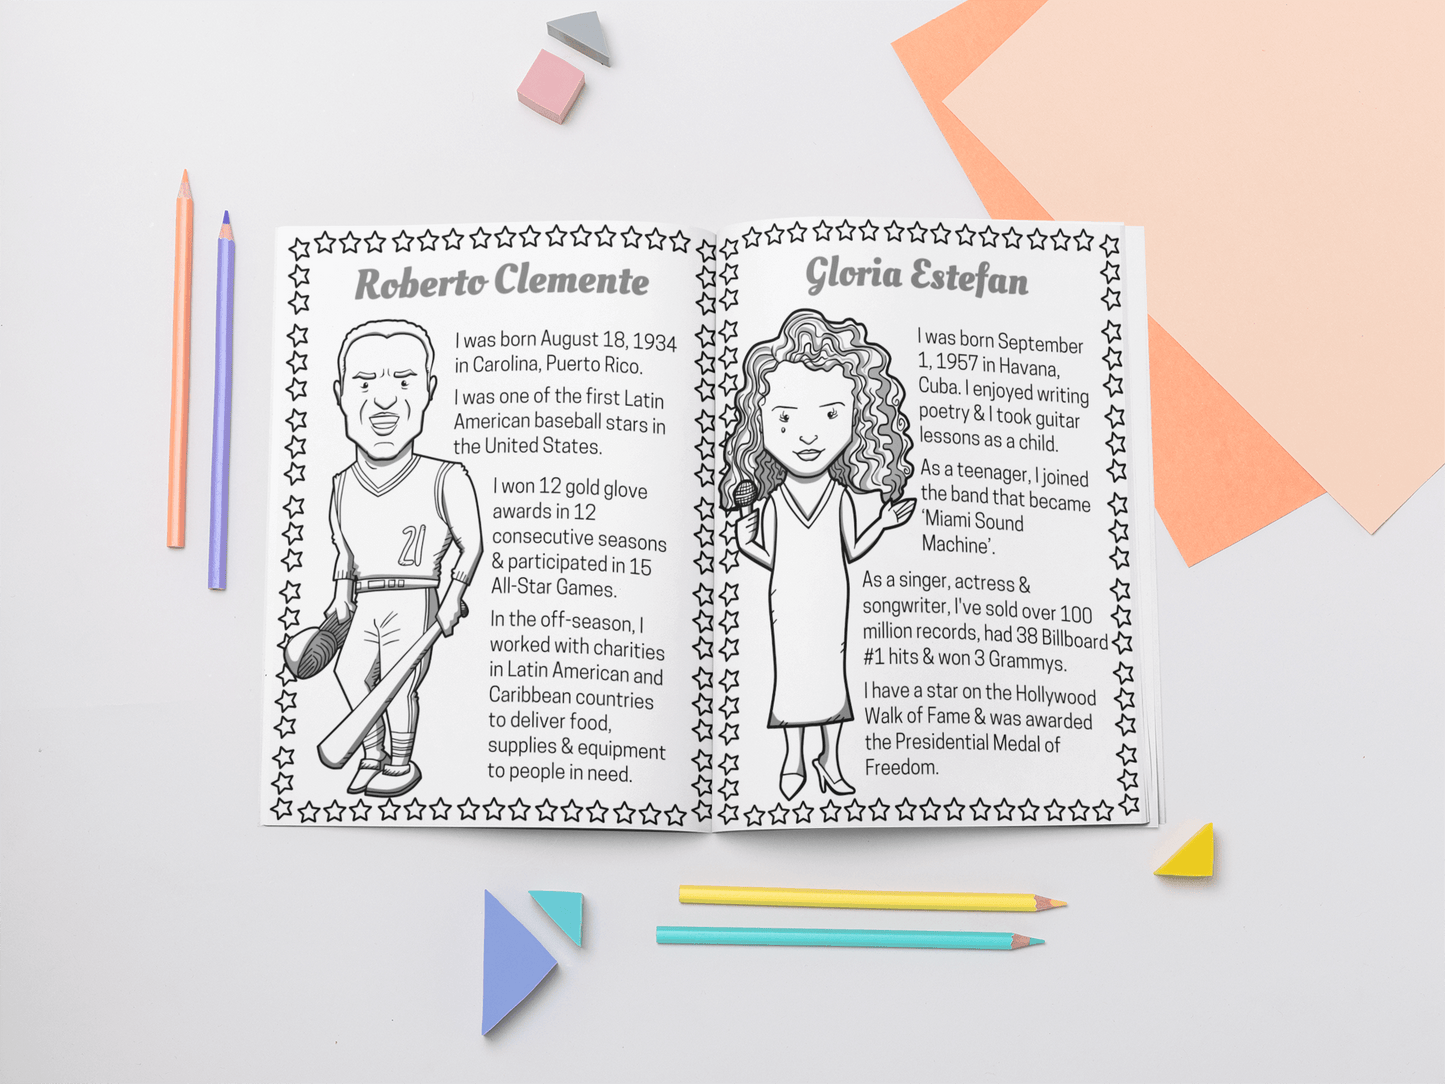 Roberto Clemente
I was born August 18, 1934
in Carolina, Puerto Rico.
I was one of the first Latin
American baseball stars in
the United States.
I won 12 gold glove
awards in 12
consecutive seasons
& participated in 15
All-Star Games.
In the off-season, I
worked with charities
in Latin American and
Caribbean countries
to deliver food,
supplies & equipment
to people in need.
21
Gloria Estefan
I was born September
1, 1957 in Havana,
Cuba. I enjoyed writing
poetry & I took guitar
lessons as a child.
As a teenager, I joined
the band that became
‘Miami Sound
Machine’.
As a singer, actress &
songwriter, I've sold over 100
million records, had 38 Billboard
#1 hits & won 3 Grammys.
I have a star on the Hollywood
Walk of Fame & was awarded
the Presidential Medal of
Freedom.